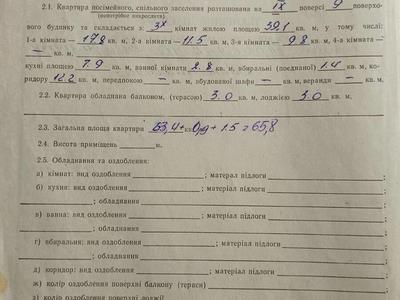 2.1. Квартира посімейного, спільного заселення розташована на IX поверсі 9 поверхо-
(непотрібне викреслити)
вого будинку та складається з: 3х кімнат жилою площею 39,1 кв. м, у тому числі:
1-а кімната — 17.8 кв. м, 2-а кімната — 11.5 кв. м, 3-я кімната — 9.8 кв. м, 4-а кімната —
— кв. м,
кухні площею 7.9 кв. м, ванної кімнати 2.8 кв. м, вбиральні (поєднаної) 1.4 кв. м, ко-
ридору 12.2 кв. м, передпокою — кв. м, вбудованої шафи — кв. м, веранди — кв. м.
2.2. Квартира обладнана балконом, (терасою) 3.0 кв. м, лоджією 3.0 кв. м.
2.3. Загальна площа квартири 63,4 + 0,9 + 1.5 = 65,8
2.4. Висота приміщень м.
2.5. Обладнання та оздоблення:
а) кімнат: вид оздоблення ; матерал підлоги
б) кухня: вид оздоблення ; матеріал підлоги
; обладнання
в) ванна: вид оздоблення ; матеріал підлоги
; обладнання
г) вбиральня: вид оздоблення ; матеріал підлоги
; обладнання
д) коридор: вид оздоблення ; матеріал підлоги
ж) колір оздоблення поверхні балкону (тераси)
з) колір оздоблення поверхні лоджії